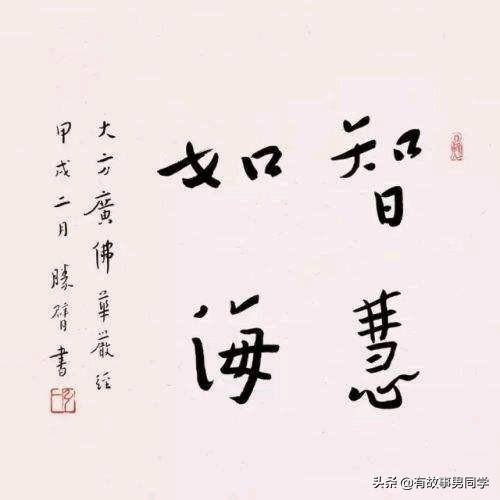 智慧
如海
大方廣佛華嚴經
甲戌二月 勝 書
头条 @有故事男同学